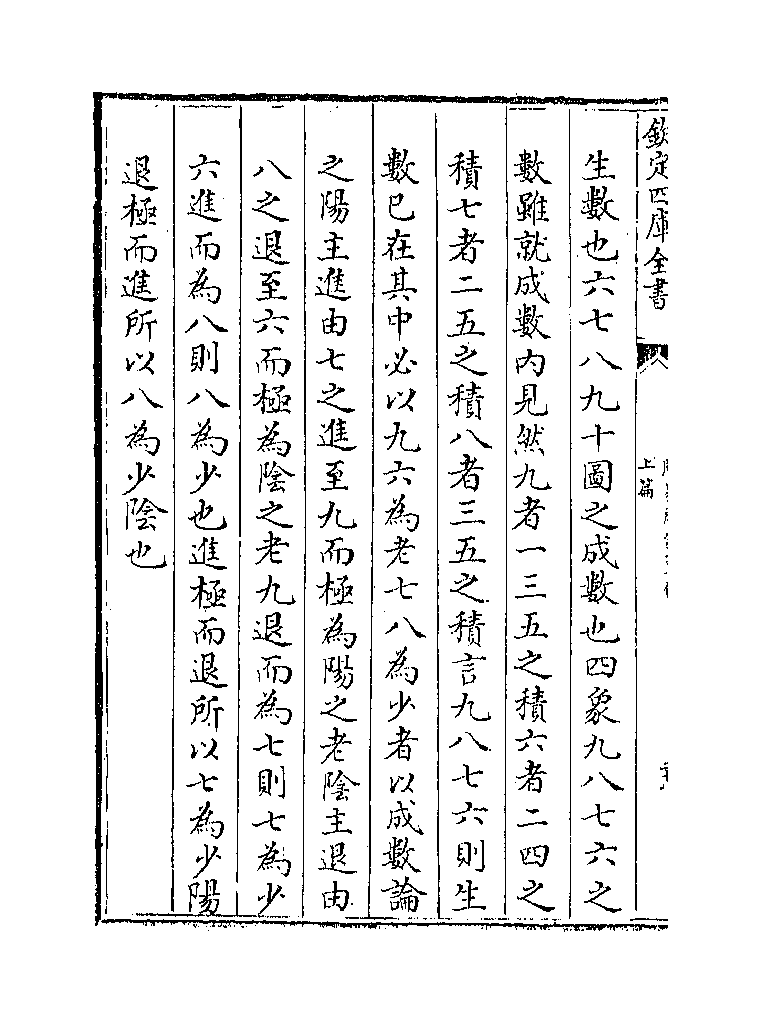 欽定四庫全書
上篇
生數也六七八九十圖之成數也四象九八七六之
數雖就成數内見然九者一三五之積六者二四之
積七者二五之積八者三五之積言九八七六則生
數已在其中必以九六為老七八為少者以成數論
之陽主進由七之進至九而極為陽之老陰主退由
八之退至六而極為陰之老九退而為七則七為少
六進而為八則八為少也進極而退所以七為少陽
退極而進所以八為少陰也